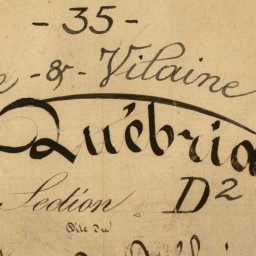 - 35 -
e -&- Vilaine
Québria
Section D2
Dite du